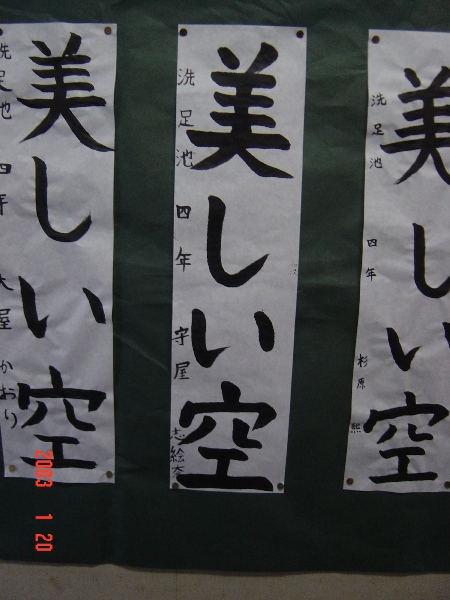 美しい空
洗足池 四年 杉原 熙
美しい空
洗足池 四年 守屋 志絵奈
美しい空
洗足池 四年 大屋 かおり
2003 1 20